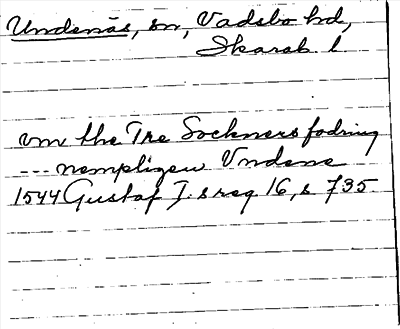 Undenäs, sn, Vadsbo hd,
Skarab. l
vm the Tre Sockners fodring
--- nempligen Vndene
1544 Gustaf I:s reg 16, s 735.